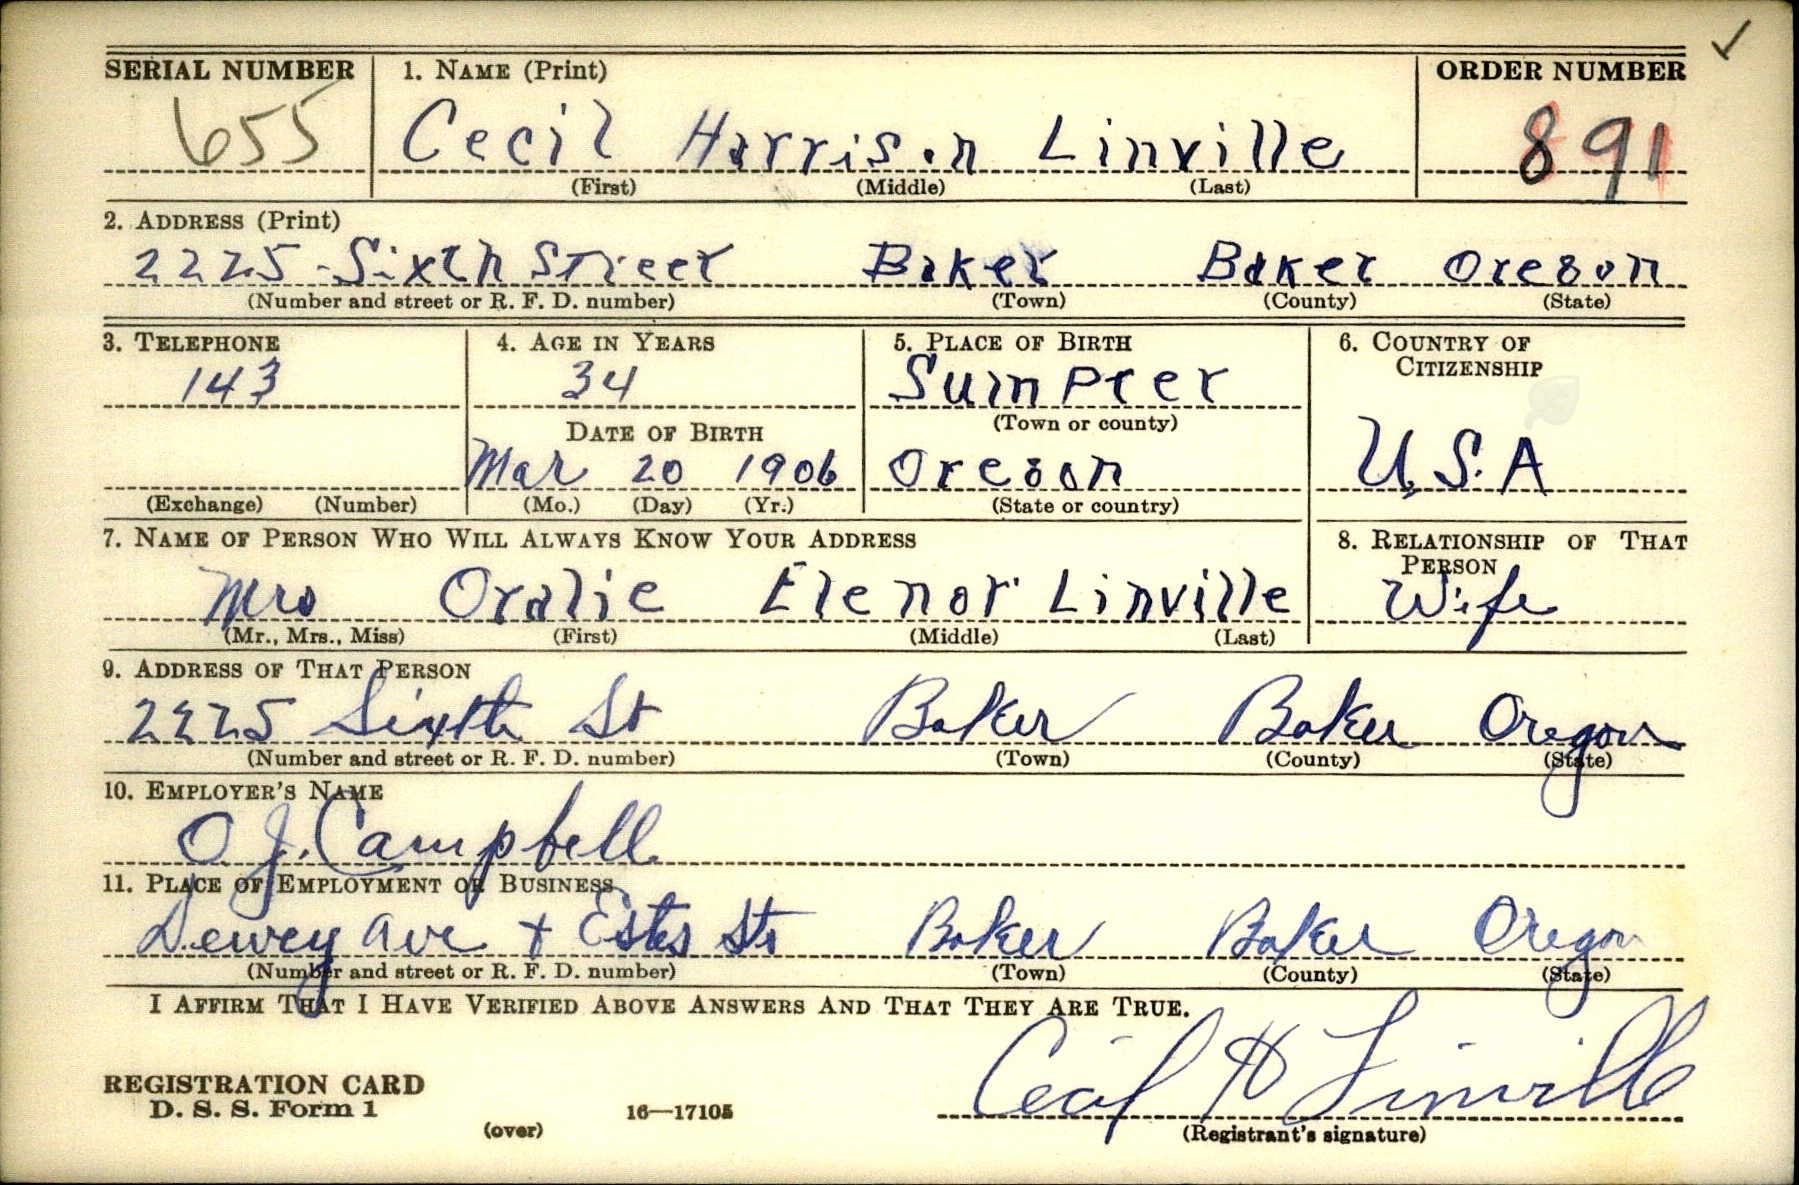 ✓
SERIAL NUMBER 1. NAME (Print) ORDER NUMBER
655 Cecil Harrison Linville 891
(First) (Middle) (Last)
2. ADDRESS (Print)
2225 - Sixth Street Baker Baker Oregon
(Number and street or R. F. D. number) (Town) (County) (State)
3. TELEPHONE 4. AGE IN YEARS 5. PLACE OF BIRTH 6. COUNTRY OF CITIZENSHIP
143 34 Sumpter
(Town or county)
DATE OF BIRTH
Mar 20 1906 Oregon U.S.A
(Exchange) (Number) (Mo.) (Day) (Yr.) (State or country)
7. NAME OF PERSON WHO WILL ALWAYS KNOW YOUR ADDRESS 8. RELATIONSHIP OF THAT PERSON
Mrs Oralie Elenor Linville Wife
(Mr., Mrs., Miss) (First) (Middle) (Last)
9. ADDRESS OF THAT PERSON
2225 Sixth St Baker Baker Oregon
(Number and street or R. F. D. number) (Town) (County) (State)
10. EMPLOYER'S NAME
O. J. Campbell
11. PLACE OF EMPLOYMENT OR BUSINESS
Dewey Ave + Estes Sts Baker Baker Oregon
(Number and street or R. F. D. number) (Town) (County) (State)
I AFFIRM THAT I HAVE VERIFIED ABOVE ANSWERS AND THAT THEY ARE TRUE.
Cecil H Linville
REGISTRATION CARD
D. S. S. Form 1 16—17105
(over) (Registrant's signature)